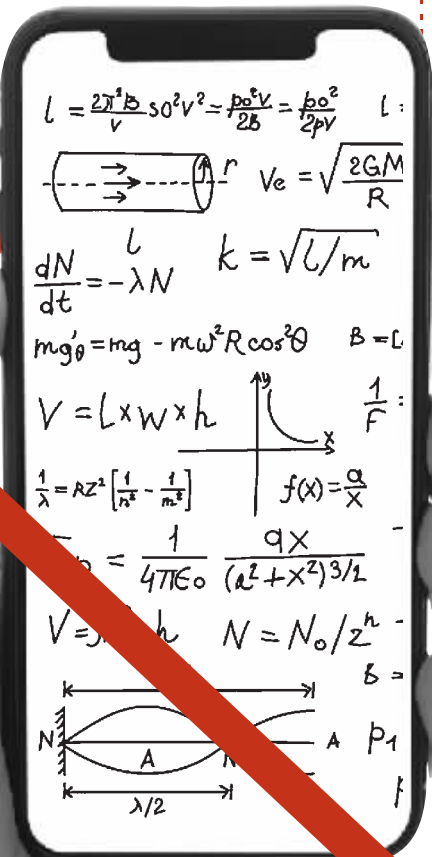 l = 2π²B/v so²v² = po²v/2B = po²/2pv l =
r Ve = √2GM/R
l
dN/dt = -λN k = √l/m
mg'θ = mg - mω²Rcos²θ B = [
V = l × w × h y 1/F =
x
1/λ = RZ² [1/n² - 1/m²] f(x) = a/x
= 1/4πϵo qx/(a²+x²)3/2
V = h N = No/2ⁿ
B =
N A N A P1
λ/2